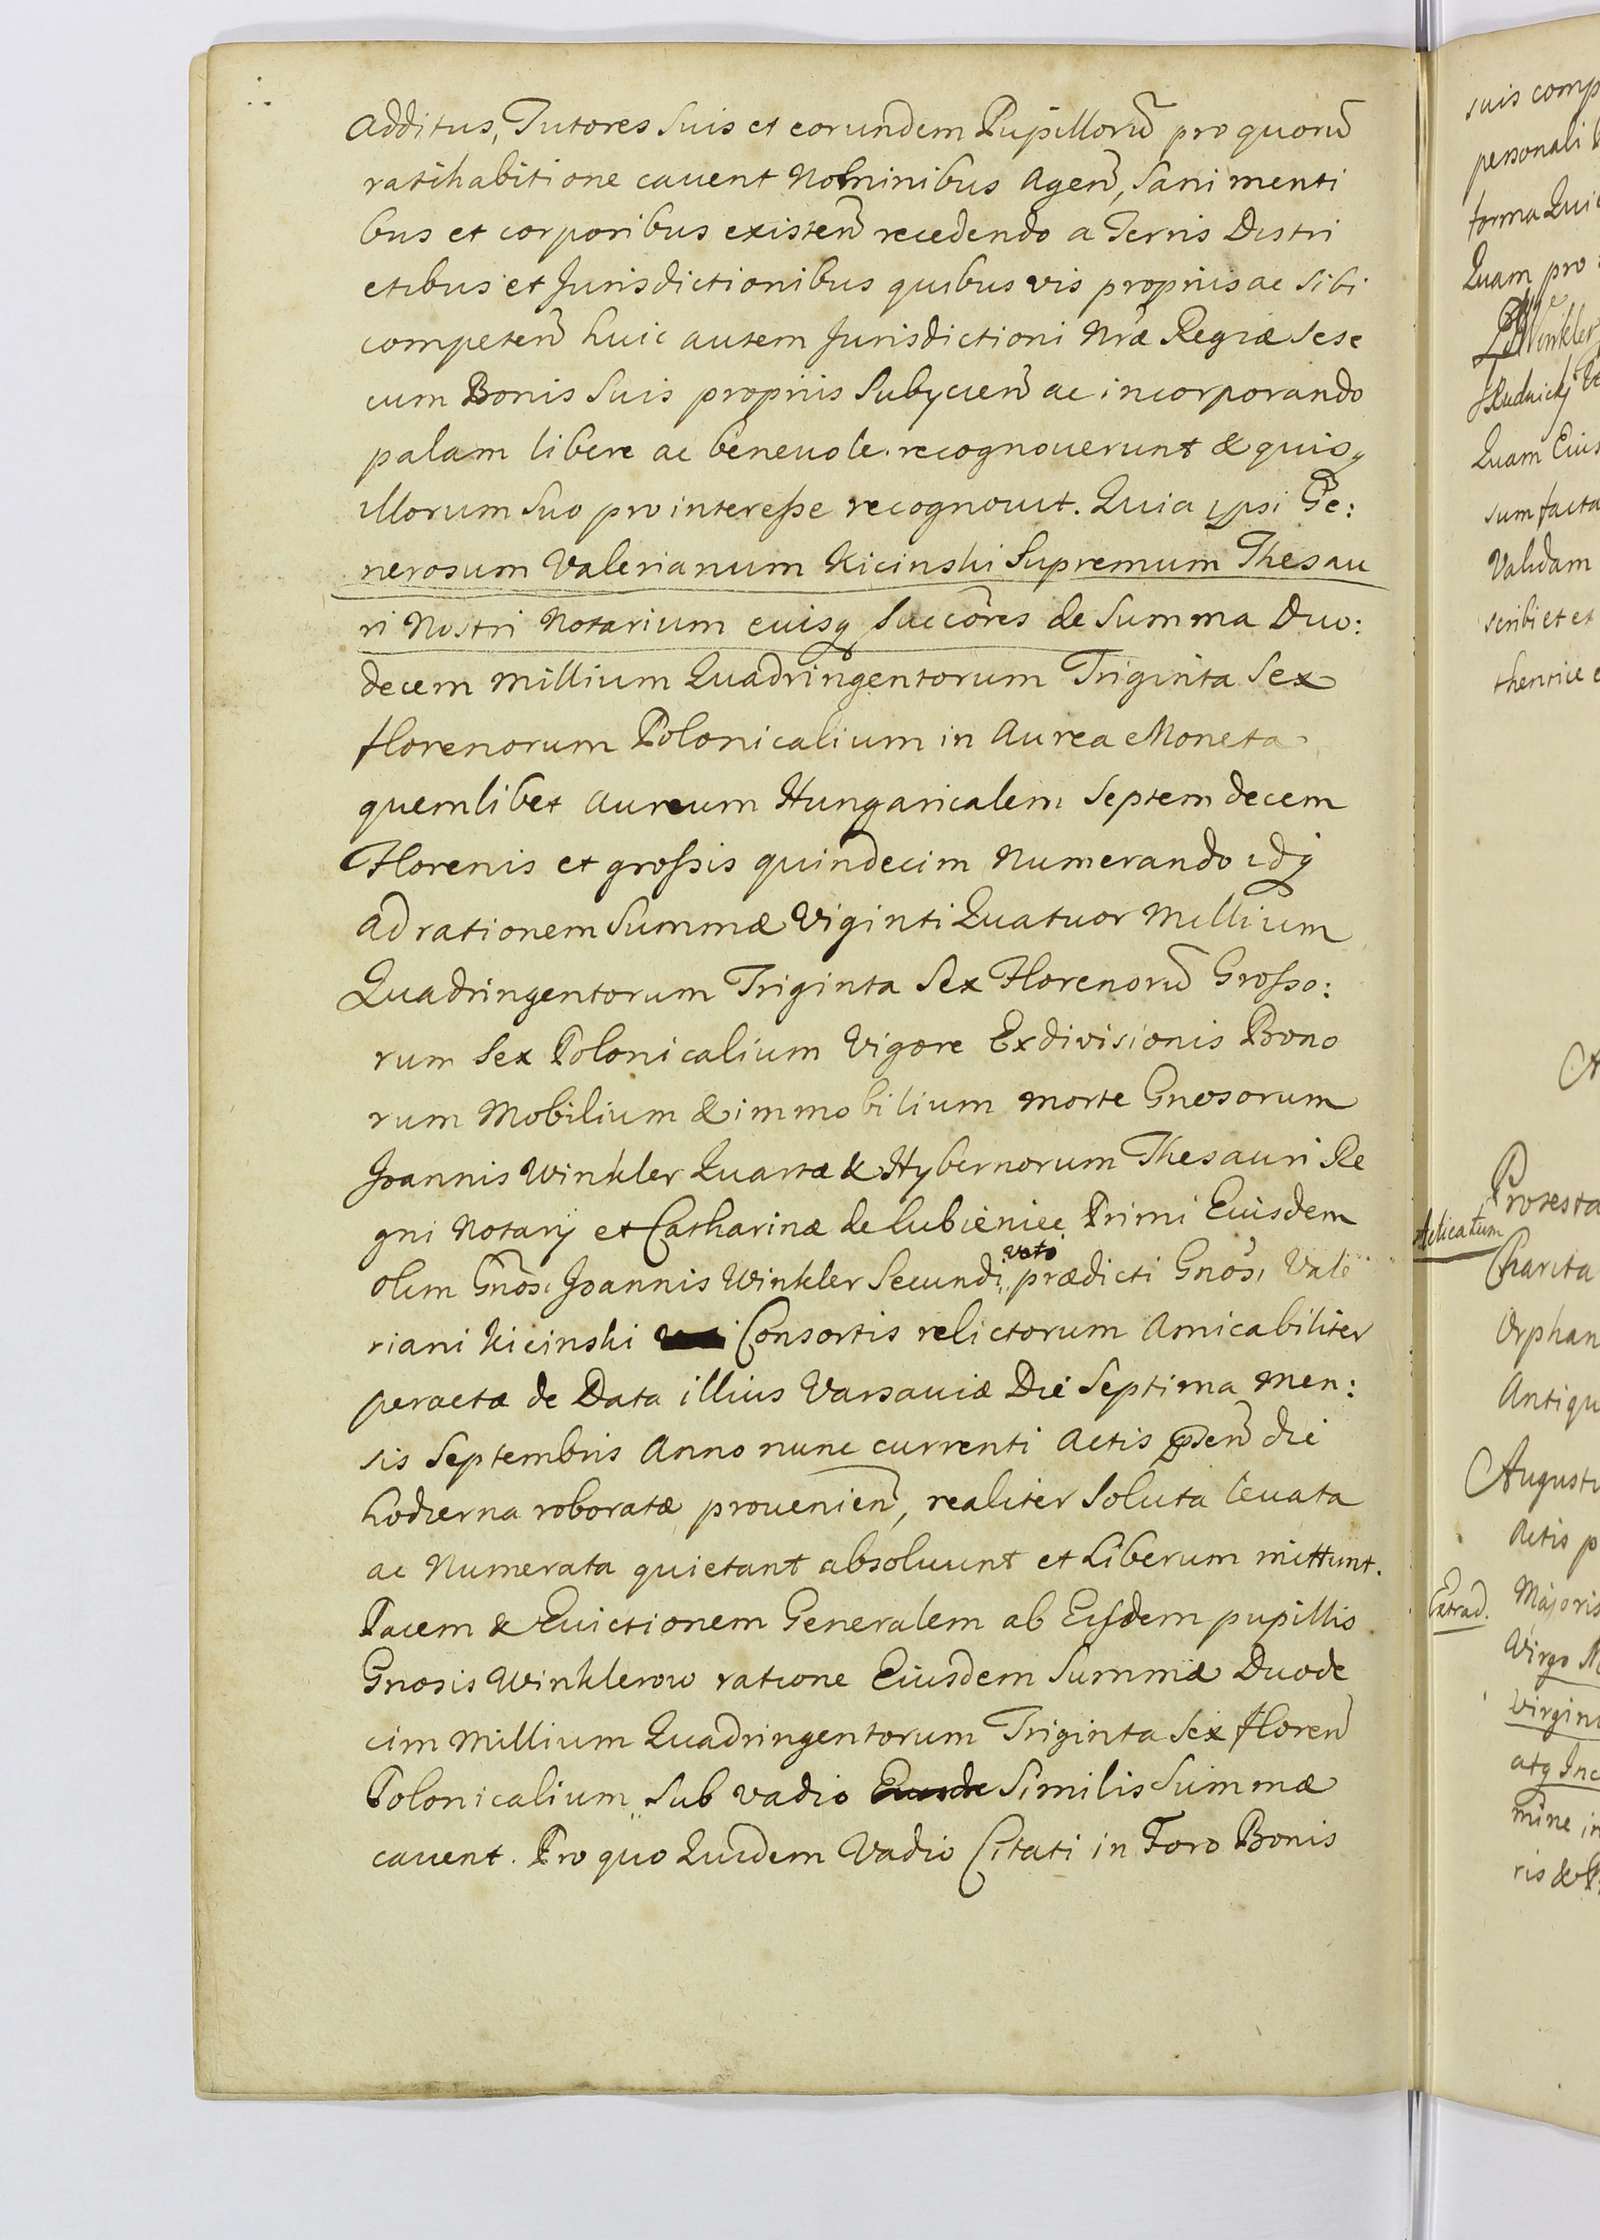 Additus, Tutores suis et eorundem Pupillorũ pro quorũ
ratihabitione cauent Nominibus Ageñ, sani menti
bus et corporibus existeñ recedendo a Terris Distri
ctibus et Jurisdictionibus quibus vis proprijs ac sibi
competeñ huic autem Jurisdictioni Nræ Regiæ sese
cum Bonis suis proprijs subycieñ ac incorporando
palam libere ac beneuole recognouerunt & quisq
illorum suo pro interesse recognouit. Quia ipsi Ge:
nerosum Valerianum Kicinski Supremum Thesau
ri Nostri Notarium euisq succõres de Summa Duo:
decem millium Quadringentorum Triginta Sex
florenorum Polonicalium in Aurea Moneta
quemlibet Aureum Hungaricalem Septem decem
Florenis et grossis quindecim Numerando idq
ad rationem Summæ Viginti Quatuor Millium
Quadringentorum Triginta Sex Florenorũ Grosso:
rum Sex Polonicalium Vigore Exdivisionis Bono
rum Mobilium & immobilium morte Gnosorum
Joannis Winkler Quartæ & Hybernorum Thesauri Re
gni Notarij et Catharinæ de Lubieniec Primi Eiusdem
olim Gnõsi Joannis Winkler Secundi voto prædicti Gnõsi Vale
riani Kicinski Consortis relictorum Amicabiliter
peractæ de Data illius Varsauiæ Die Septima Men:
sis Septembris Anno nunc currenti Actis pñseñ die
hodierna roboratæ prouenieñ, realiter Soluta leuata
ac Numerata quietant absoluunt et Liberum mittunt.
Pacem & Euictionem Generalem ab Eisdem pupillis
Gnosis Winklerow ratione Eiusdem Summæ Duode
cim Millium Quadringentorum Triginta Sex floreñ
Polonicalium, sub vadio Eiusde Similis Summæ
cauent. Pro quo Quidem Vadio Citati in Foro Bonis
suis comp
personali
forma Quie
Quam pro
Winkler
JRudnicki
Quam Eius
sum facta
Validam
scribi et ex
thentice
Protesta
Aelicatum
Charita
Orphan
Antiqu
Augustu
Actis p
Extrad.
Majoris
Virgo
Virgini
atq Inc
mine in
ris &